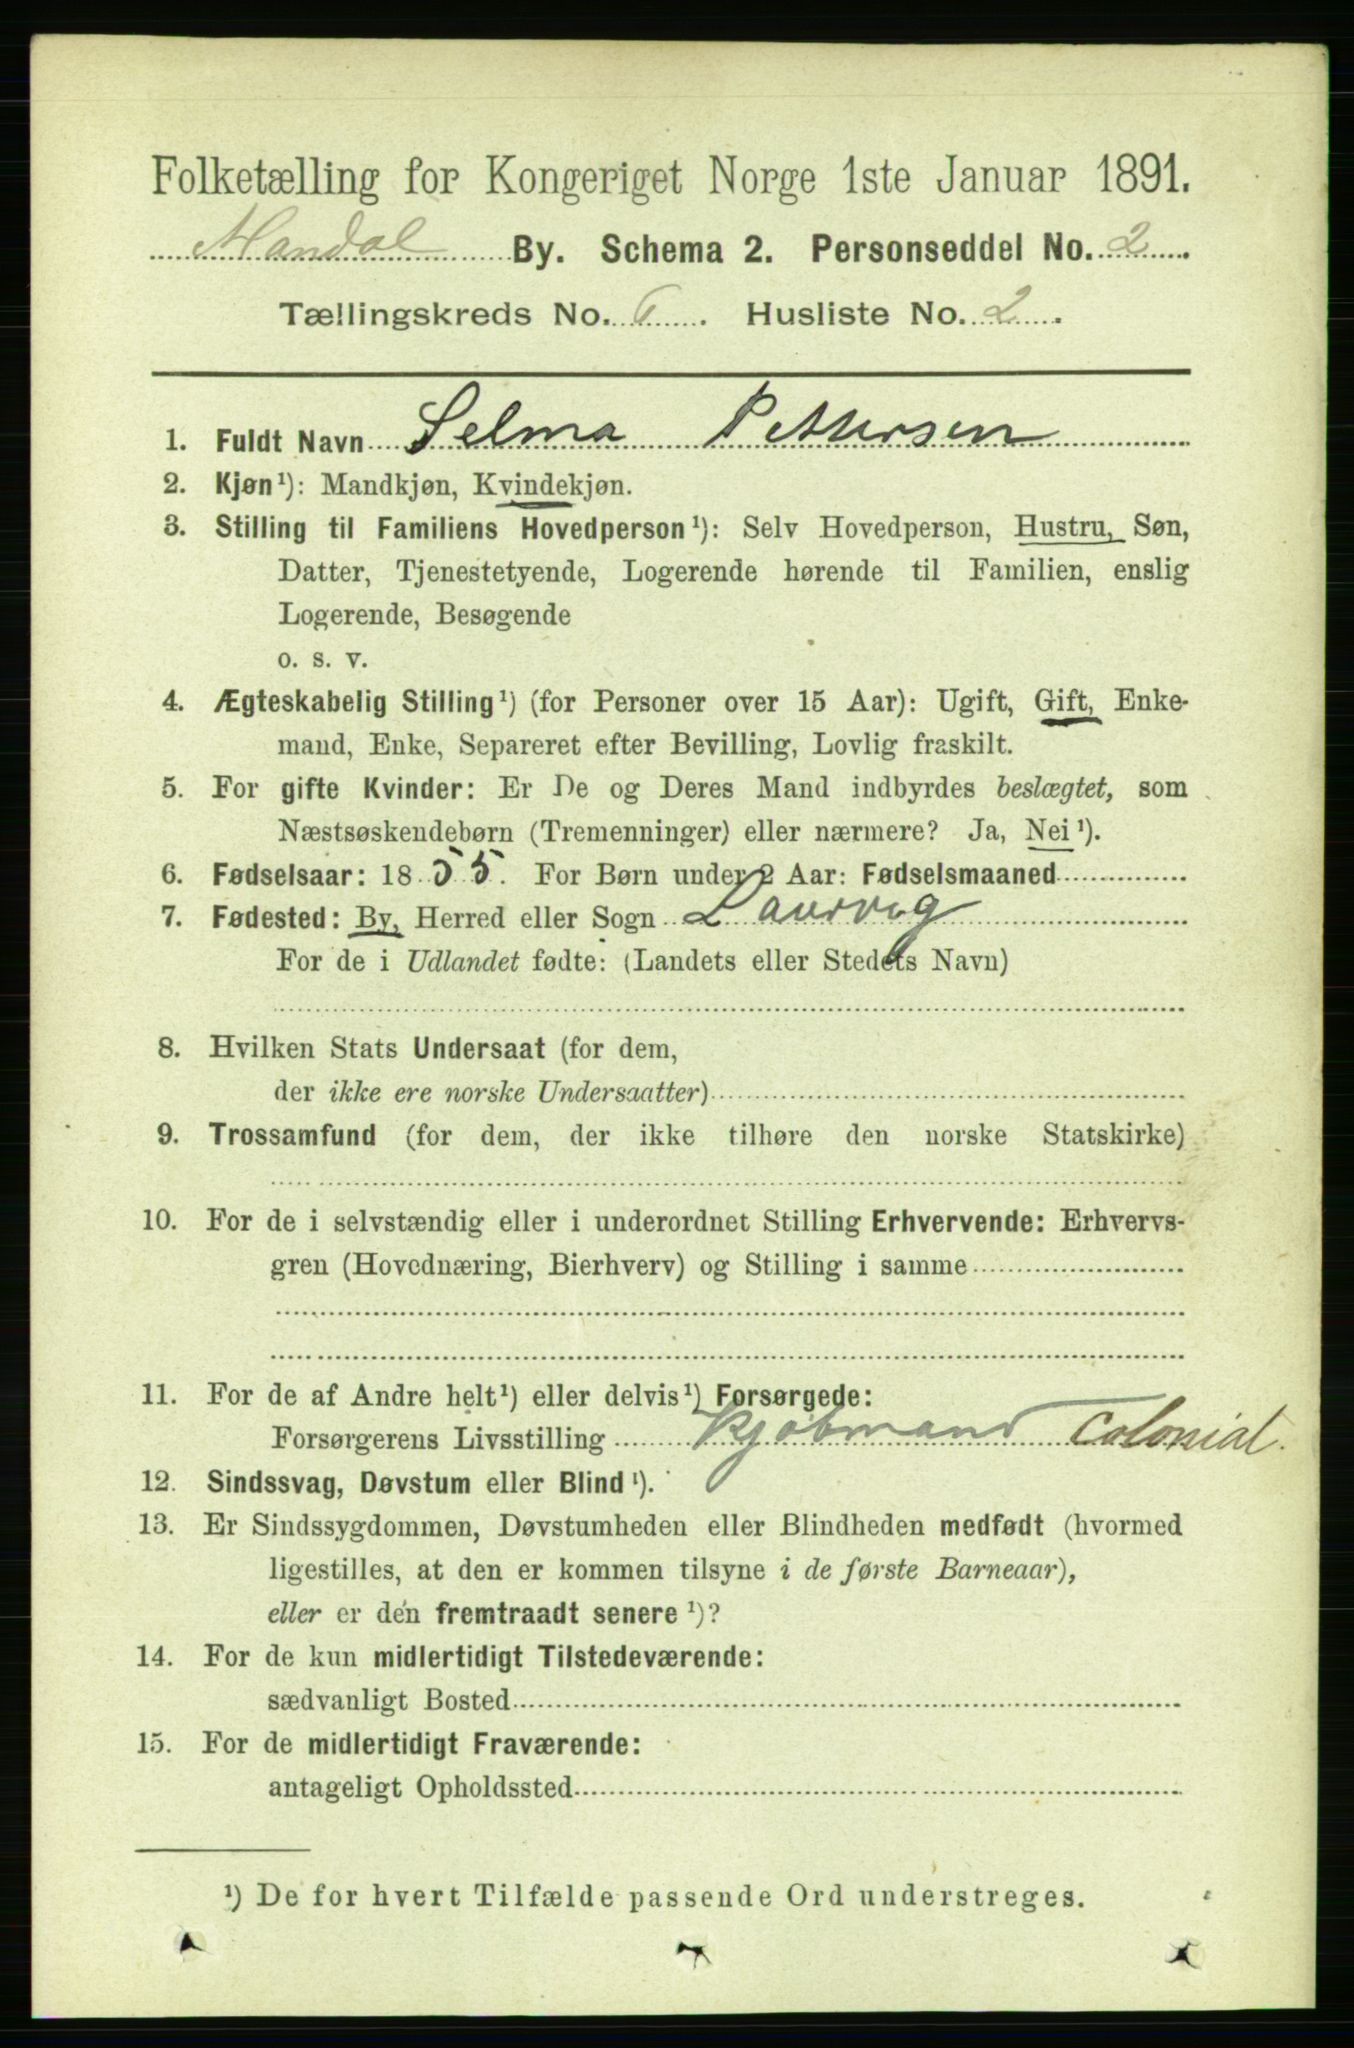 Folketælling for Kongeriget Norge 1ste Januar 1891.
Mandal By. Schema 2. Personseddel No. 2.
Tællingskreds No. 6. Husliste No. 2.
1. Fuldt Navn Selma Pettersen
2. Kjøn¹): Mandkjøn, Kvindekjøn.
3. Stilling til Familiens Hovedperson¹): Selv Hovedperson, Hustru, Søn,
Datter, Tjenestetyende, Logerende hørende til Familien, enslig
Logerende, Besøgende
o. s. v.
4. Ægteskabelig Stilling¹) (for Personer over 15 Aar): Ugift, Gift, Enke-
mand, Enke, Separeret efter Bevilling, Lovlig fraskilt.
5. For gifte Kvinder: Er De og Deres Mand indbyrdes beslægtet, som
Næstsøskendebørn (Tremenninger) eller nærmere? Ja, Nei¹).
6. Fødselsaar: 1855. For Børn under 2 Aar: Fødselsmaaned
7. Fødested: By, Herred eller Sogn Laurvig
For de i Udlandet fødte: (Landets eller Stedets Navn)
8. Hvilken Stats Undersaat (for dem,
der ikke ere norske Undersaatter)
9. Trossamfund (for dem, der ikke tilhøre den norske Statskirke)
10. For de i selvstændig eller i underordnet Stilling Erhvervende: Erhvervs-
gren (Hovednæring, Bierhverv) og Stilling i samme
11. For de af Andre helt¹) eller delvis¹) Forsørgede:
Forsørgerens Livsstilling Kjøbmand Colonial.
12. Sindssvag, Døvstum eller Blind¹).
13. Er Sindssygdommen, Døvstumheden eller Blindheden medfødt (hvormed
ligestilles, at den er kommen tilsyne i de første Barneaar),
eller er den fremtraadt senere¹)?
14. For de kun midlertidigt Tilstedeværende:
sædvanligt Bosted
15. For de midlertidigt Fraværende:
antageligt Opholdssted
¹) De for hvert Tilfælde passende Ord understreges.